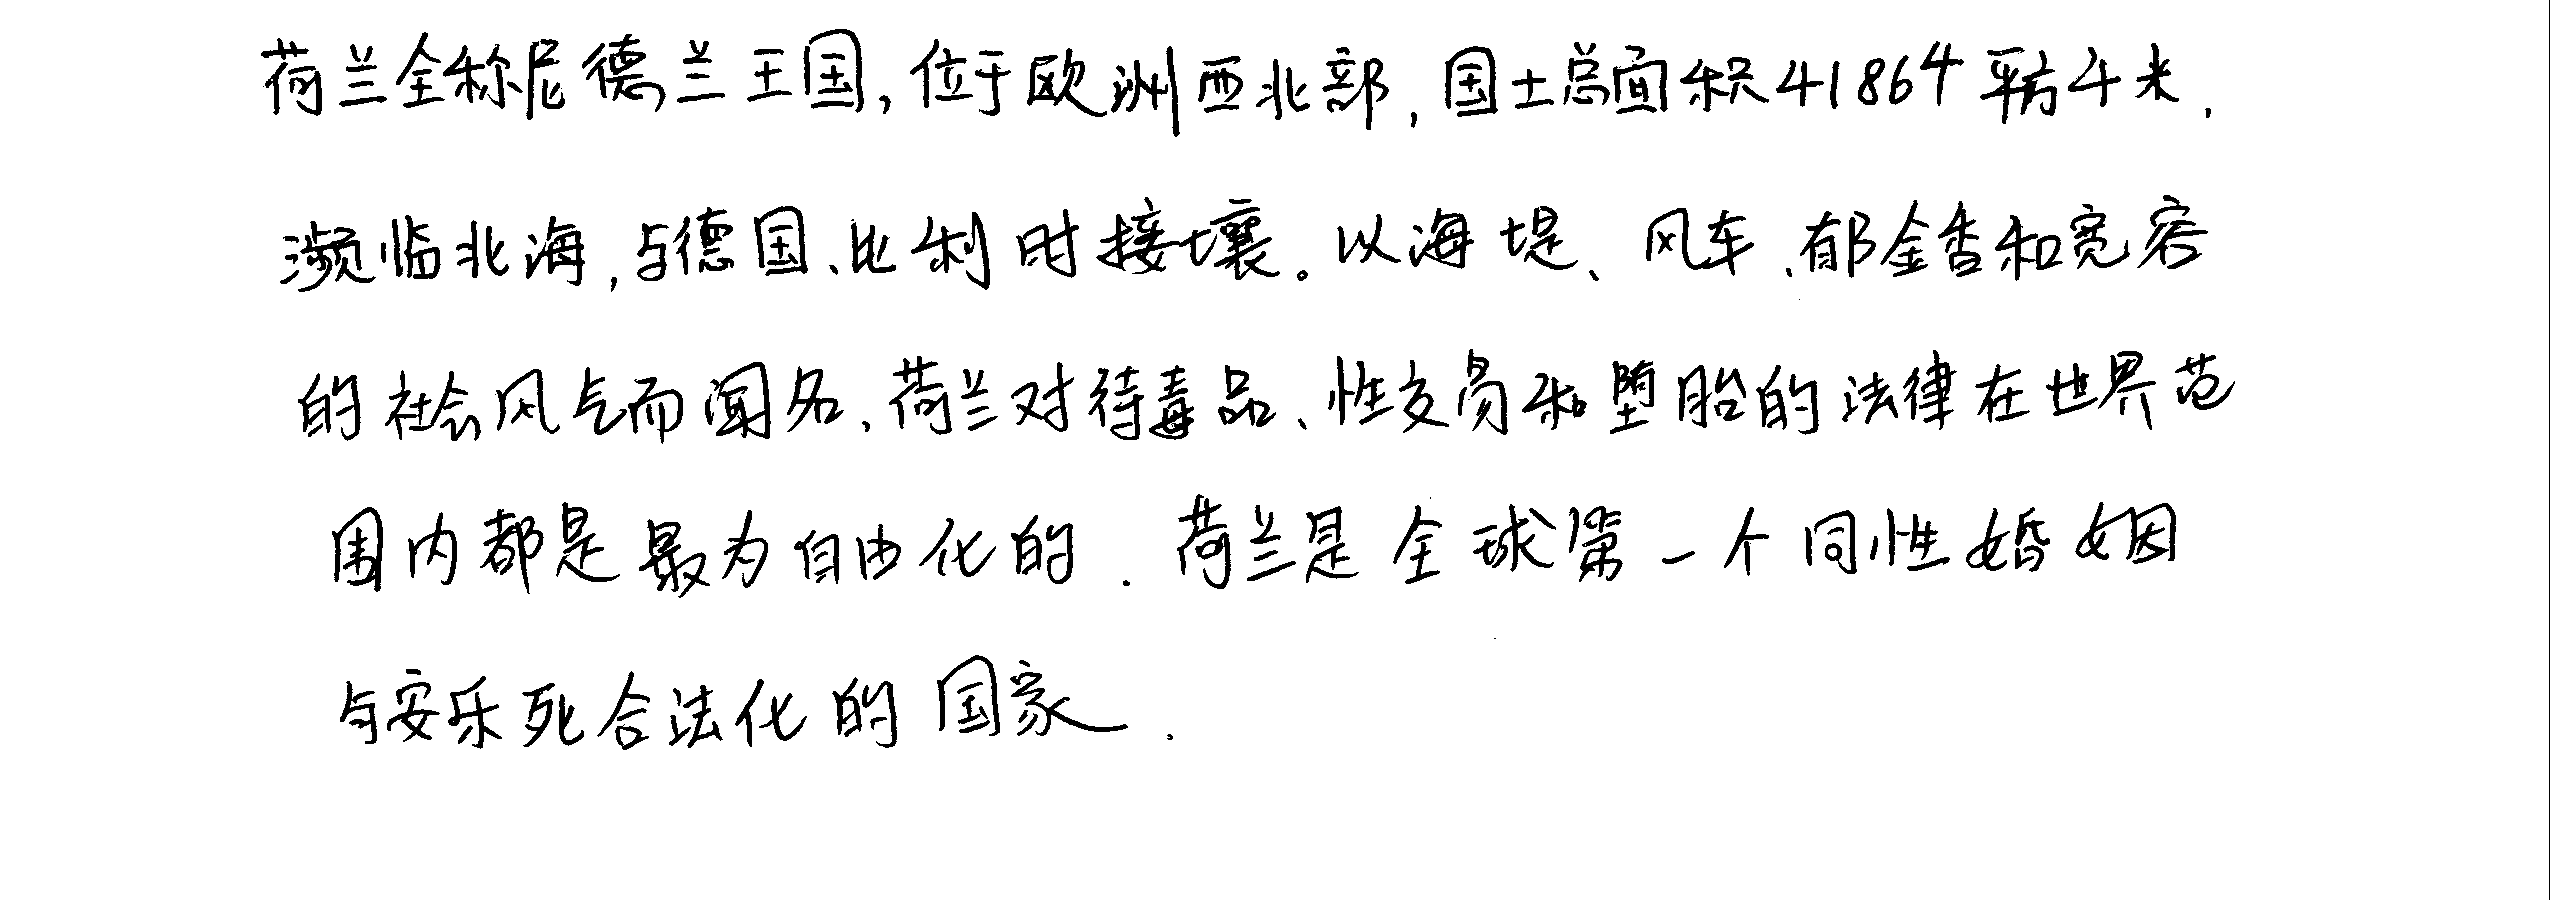 荷兰全称尼德兰王国,位于欧洲西北部,国土总面积41864平方千米,
濒临北海,与德国、比利时接壤。以海堤、风车、郁金香和宽容
的社会风气而闻名,荷兰对待毒品、性交易和堕胎的法律在世界范
围内都是最为自由化的.荷兰是全球第一个同性婚姻
与安乐死合法化的国家.